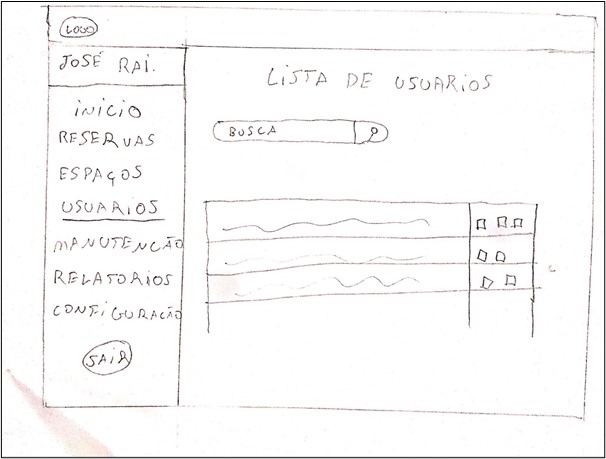 LOGO
JOSÉ RAI.
INICIO
RESERVAS
ESPAÇOS
USUARIOS
MANUTENCÃO
RELATORIOS
CONFIGURACÃO
SAIR
LISTA DE USUARIOS
BUSCA